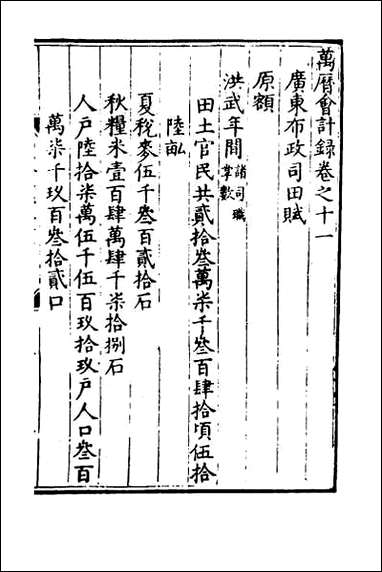 萬曆會計録卷之十一
廣東布政司田賦
原額
洪武年間諸司職掌數
田土官民共貳拾叁萬柒千叁百肆拾頃伍拾
陸畝
夏稅麥伍千叁百貳拾石
秋糧米壹百肆萬肆千柒拾捌石
人戶陸拾柒萬伍千伍百玖拾玖戶人口叁百
萬柒千玖百叁拾貳口